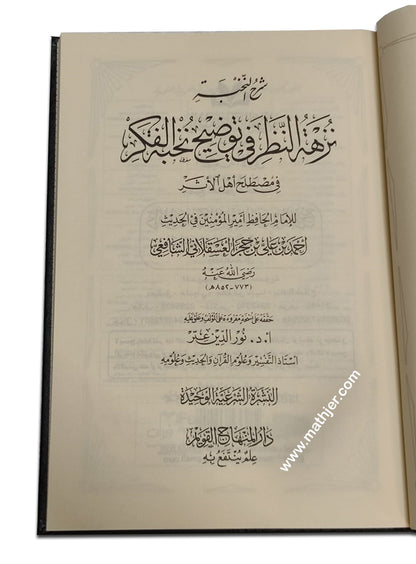 شرح النخبة
نزهة النظر في توضيح نخبة الفكر
في مصطلح أهل الأثر
للإمام الحافظ أمير المؤمنين في الحديث
أحمد بن علي بن حجر العسقلاني الشافعي
رضي الله عنه
(٧٧٣-٨٥٢هـ)
حققه على نسخة مقروءة على المؤلف وعلق عليه
أ.د. نور الدين عتر
أستاذ التفسير وعلوم القرآن والحديث وعلومه
النشرة الشرعية الوحيدة
دار المنهاج القويم
علم ينتفع به
www.mathjer.com